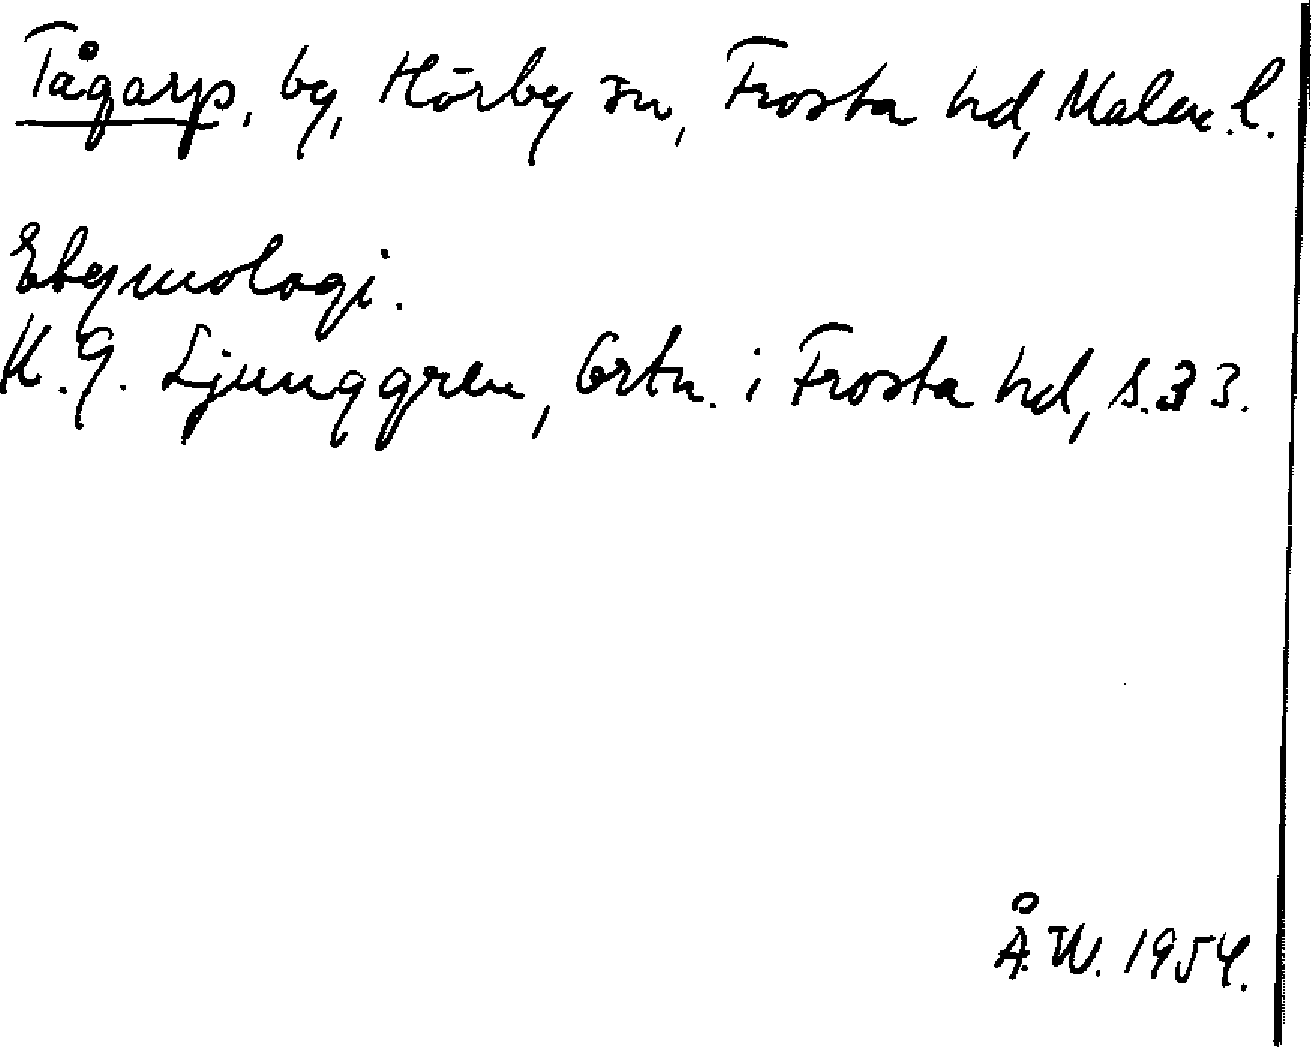 Tågarp, by, Hörby sn, Frosta hd, Malm. l.
Etymologi.
K. G. Ljunggren, Ortn. i Frosta hd, s. 33.
Å. W. 1954.